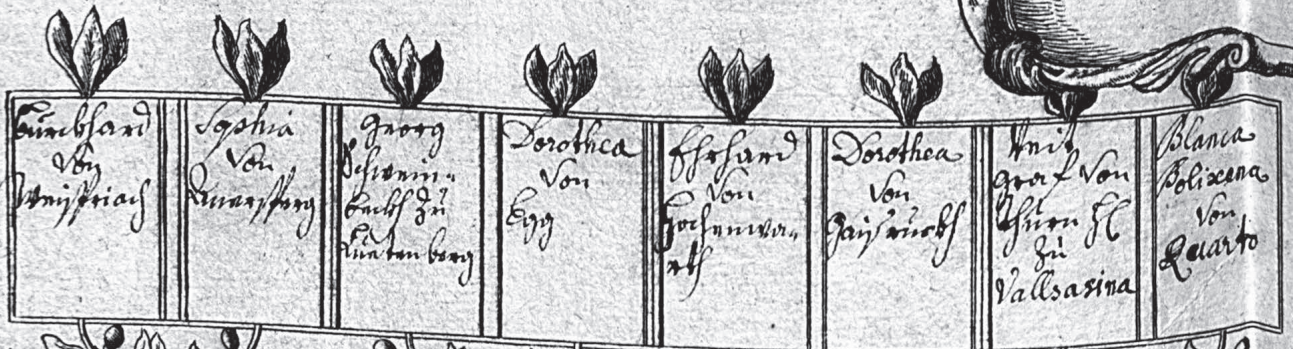 Burckhard
Von
Weispriach
Sophia
Von
Auersperg
Georg
Schwein-
beckh zu
Luetenberg
Dorothea
Von
Egg
Ehrhard
Von
Hochenwa-
rth
Dorothea
Von
Gaysruckh
Veit
Graf Von
Thurn
zu
Vallsasina
Blanca
Polixena
Von
Quarto